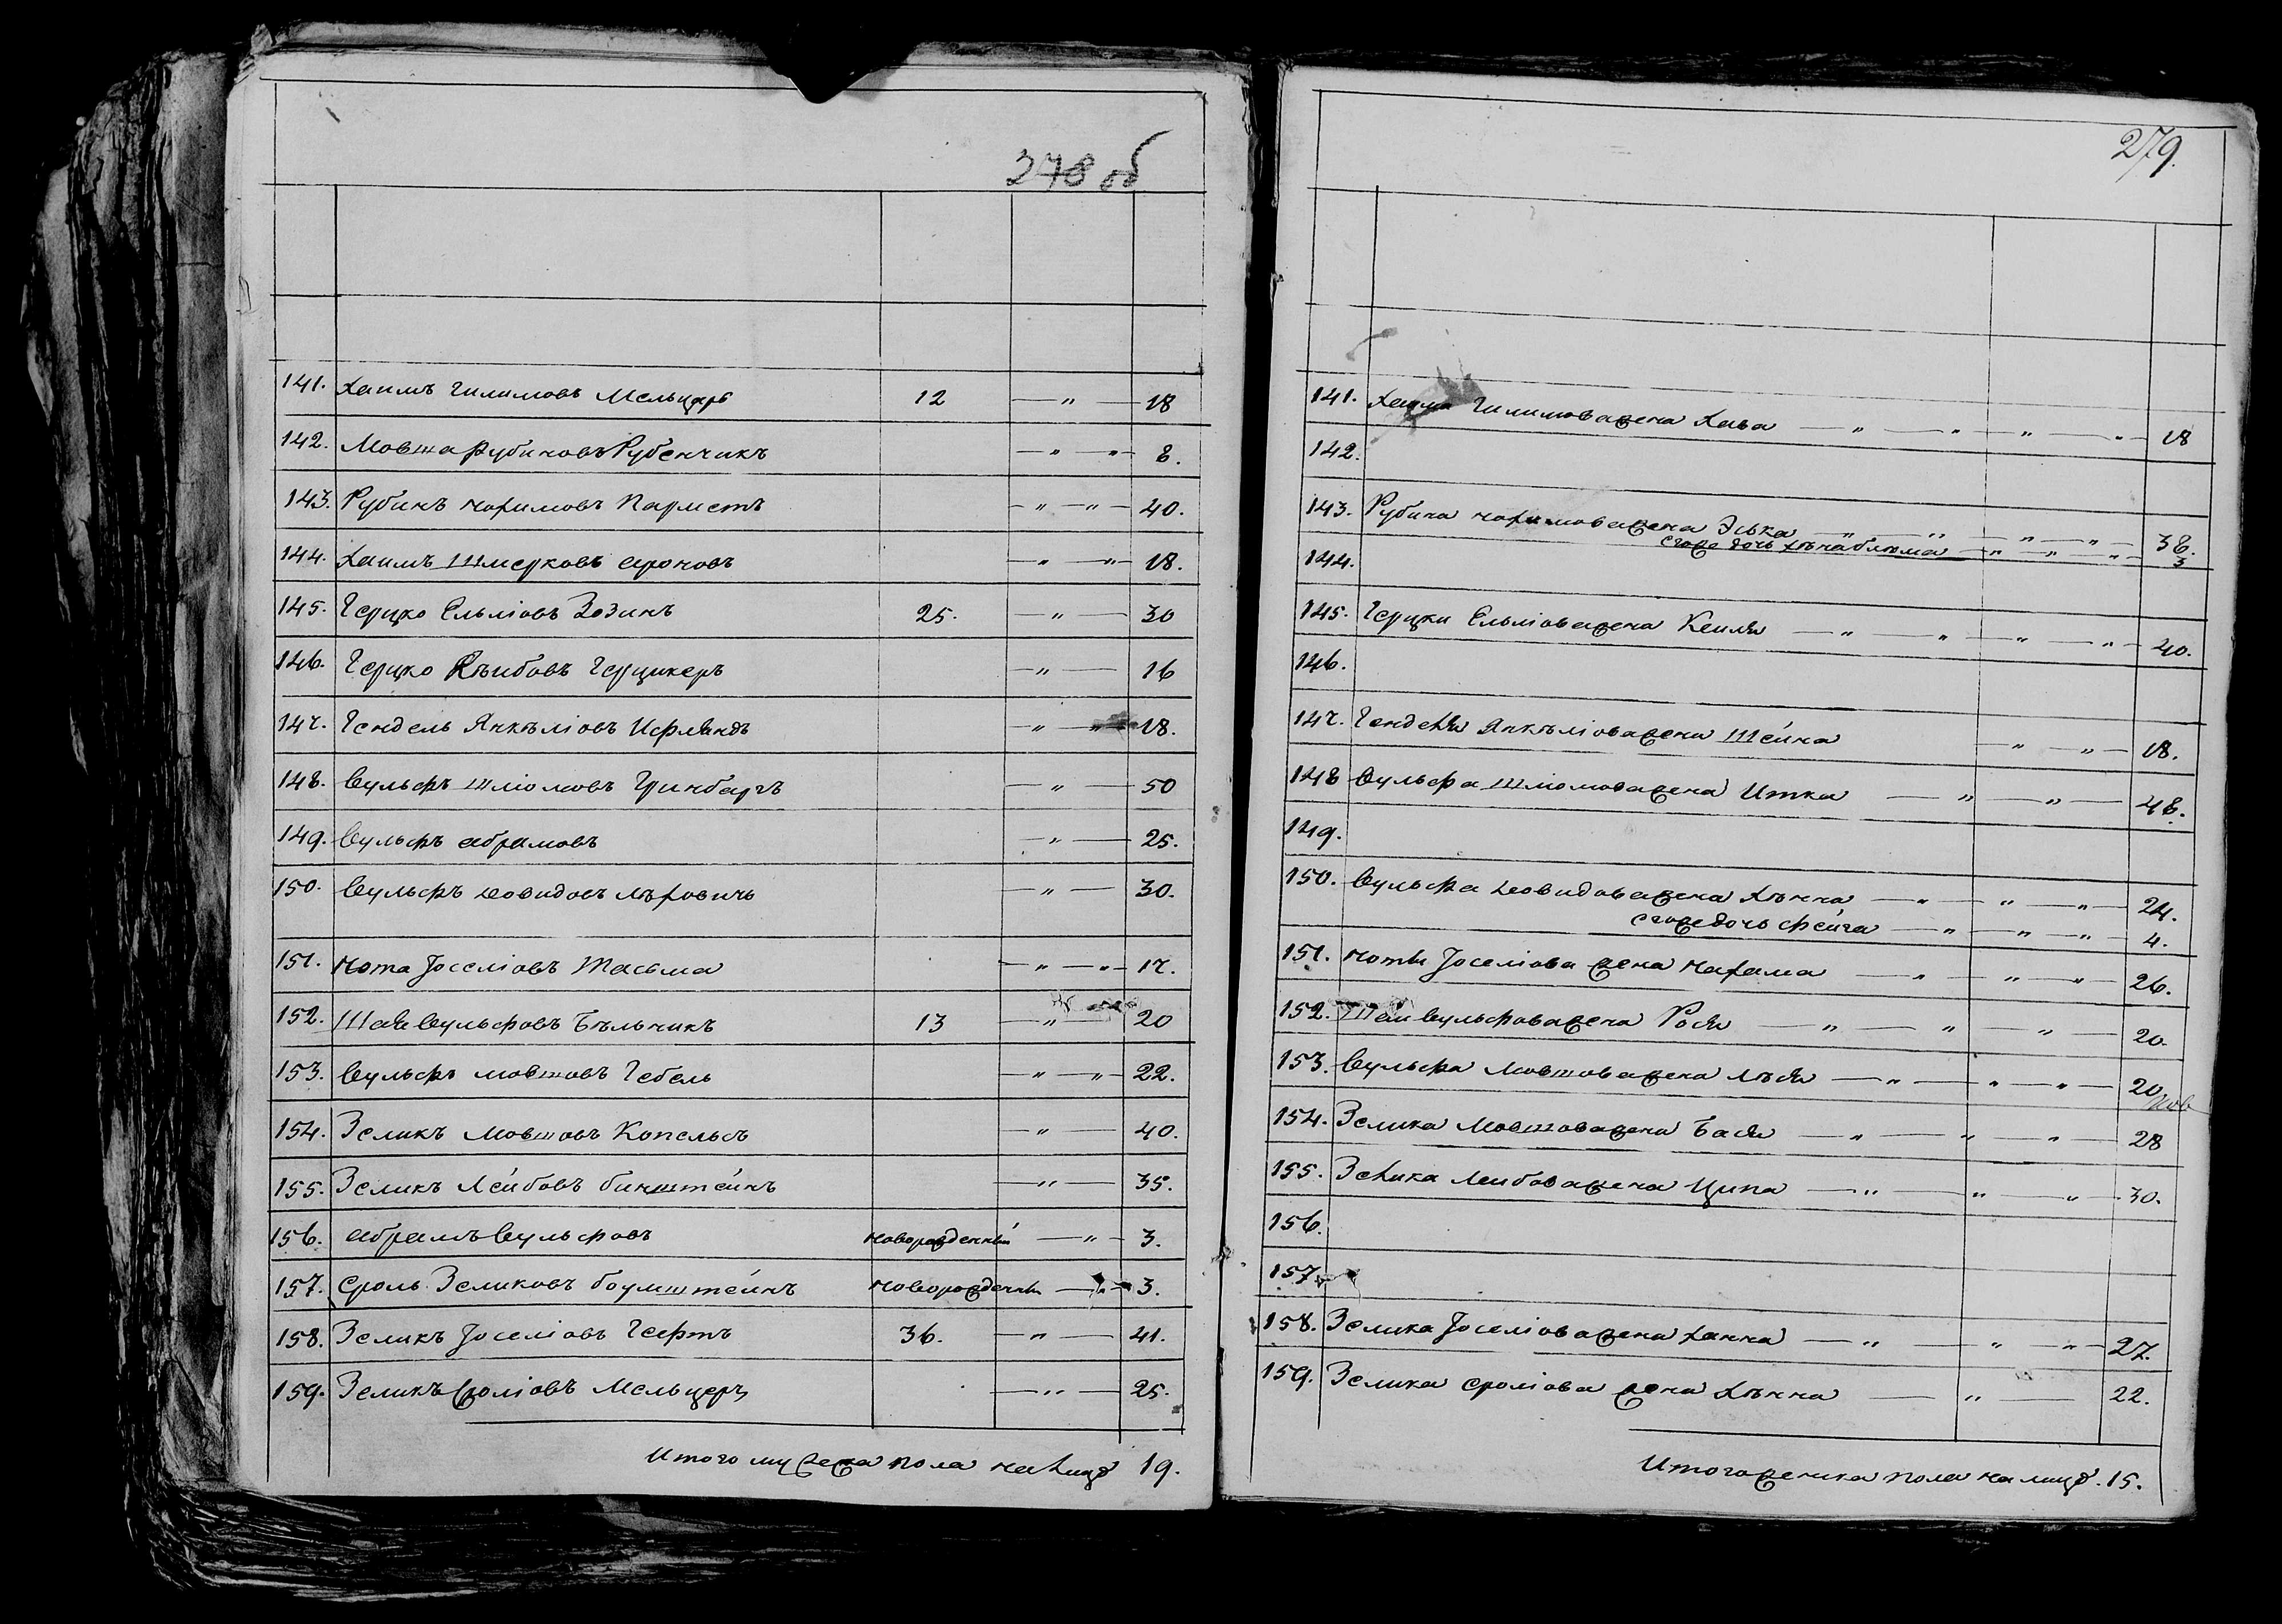 278 об
141. Хаимъ Гилимовъ Мельцарь 12 — " — 18
142. Мовша Рубиновъ Рубенчикъ — " — " — 8.
143. Рубинъ Нохимовъ Пармстъ — " — " — 40.
144. Хаимъ Шмерковъ Ароновъ — " — " — 18.
145. Герцко Ельліовъ Зозинъ 25. — " — 30
146. Герцко Лѣибовъ Герцикеръ — " — 16
147. Гендель Янкѣліовъ — " — " — 18.
148. Вульфъ Шліомовъ Гринбаргъ — " — 50
149. Вульфъ Абрамовъ — " — 25.
150. Вульфъ Довидовъ Лѣховичь — " — 30.
151. Нота Іоселіовъ Тасьма — " — " — 17.
152. Шая Вульфовъ Бѣльчикъ 13 — " — 20
153. Вульфъ Мовшовъ Гебель — " — " — 22.
154. Зеликъ Мовшовъ Копельсъ — " — 40.
155. Зеликъ Лейбовъ Бинштейнъ — " — 35.
156. Абрамъ Вульфовъ новорожденный — " — 3.
157. Сроль Зеликовъ Боумштейнъ новорожденны — " — 3.
158. Зеликъ Іоселіовъ Гефтъ 36. — " — 41.
159. Зеликъ Сроліовъ Мельцеръ — " — 25.
Итого мужеска пола на лицо 19.
279.
141. Хаима Гилимова жена Хава — " — " — " — " — 18
142.
143. Рубина Нохимова жена Эська " " — " — " — 38.
его же дочь Хѣна блюма — " — " — " — 3
144.
145. Герцки Ельліова жена Кейля — " — " — " — " — 40.
146.
147. Генделя Янкѣліова жена Шейна — " — " — 18.
148 Вульфа Шліомова жена Итка — " — " — 48.
149.
150. Вульфа Довидова жена Хѣнна — " — " — " — 24.
его же дочь Фейга — " — " — " — 4.
151. Ноты Іоселіова жена Нахама — " — " — " — 26.
152. Шаи Вульфова жена Рося — " — " — " — 20.
153. Вульфа Мовшова жена Лѣя — " — " — " — 20
154. Зелика Мовшова жена Бася — " — " — " — 28
155. Зелика Лейбова жена Ципа — " — " — " — 30.
156.
157.
158. Зелика Іоселіова жена Ханна — " — " — " — 27.
159. Зелика Сроліова жена Хѣнна — " — 22.
Итого женска пола на лицо. 15.